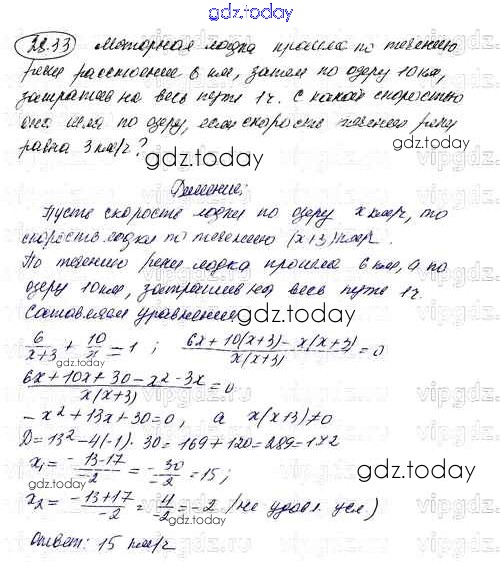 gdz.today
28.33 Моторная лодка прошла по течению
реки расстояние 6 км, затем по озеру 10 км,
затратив на весь путь 1 ч. С какой скоростью
она шла по озеру, если скорость течения реки
равна 3 км/ч?
gdz.today
Решение:
Пусть скорость лодки по озеру x км/ч, то
скорость лодки по течению (x+3) км/ч.
По течению реки лодка прошла 6 км, а по
озеру 10 км, затратив на весь путь 1 ч.
Составляем уравнение
gdz.today
6/x+3 + 10/x = 1 ; 6x+10(x+3)-x(x+3)/x(x+3) = 0
6x+10x+30-x²-3x/x(x+3) = 0
-x²+13x+30=0, а x(x+3)≠0
D=13²-4(-1)·30=169+120=289=17²
x₁= -13-17/-2 = -30/-2 = 15;
gdz.today
x₂= -13+17/-2 = 4/-2 = -2 (не удовл. усл.)
gdz.today
Ответ: 15 км/ч